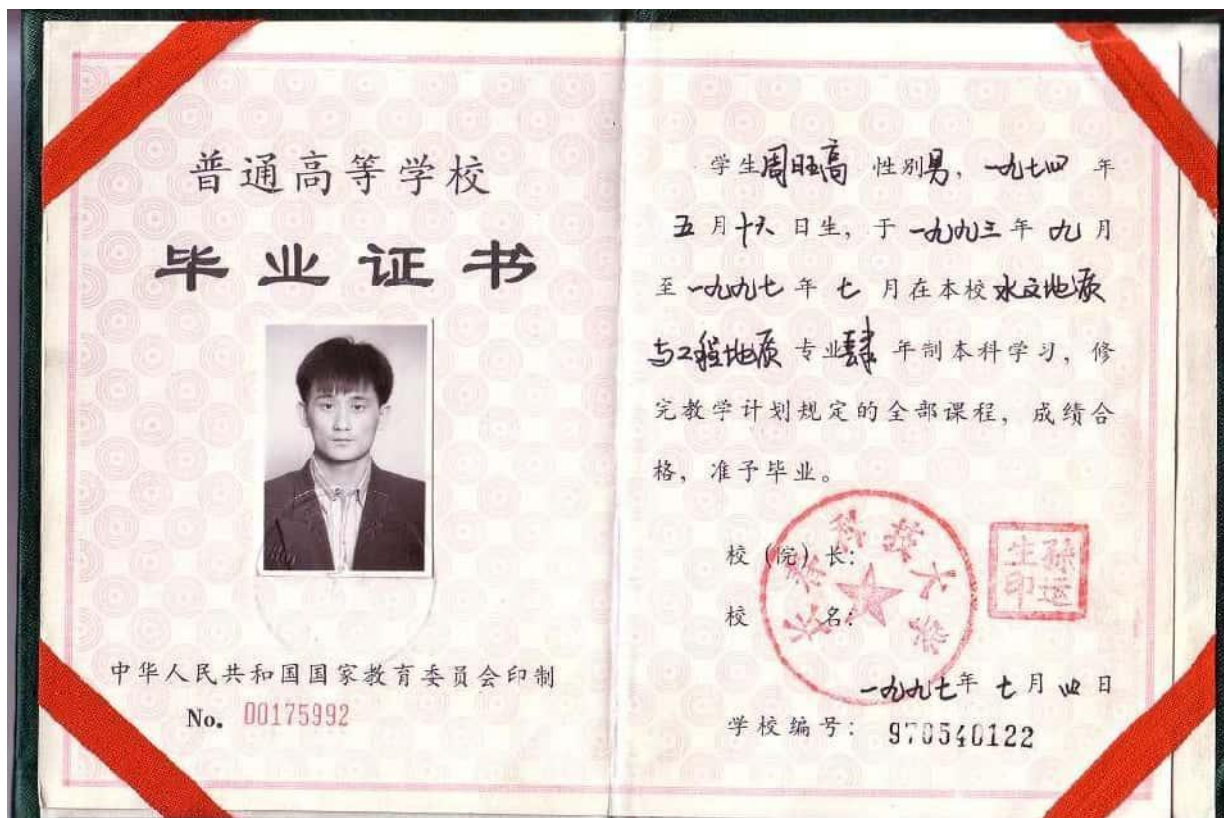 普通高等学校
毕业证书
中华人民共和国国家教育委员会印制
No. 00175992
学生周旺高 性别男，一九七四 年
五 月 十六 日生，于 一九九三 年 九 月
至 一九九七 年 七 月在本校 水文地质
与工程地质 专业 肆 年制本科学习，修
完教学计划规定的全部课程，成绩合
格，准予毕业。
长春科技大学
校（院）长：
孙运生印
校 名：
一九九七年 七 月 四 日
学校编号： 970540122